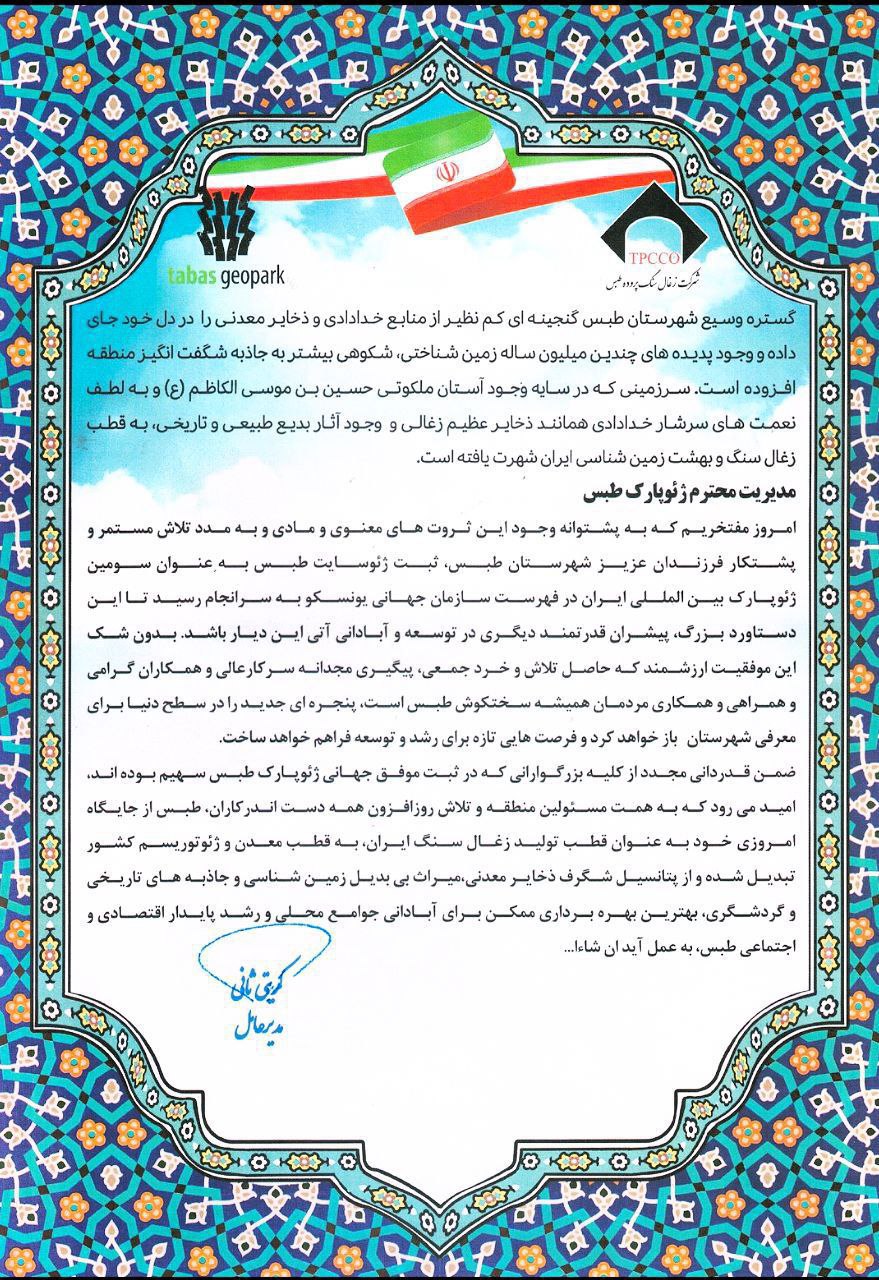 tabas geopark
TPCCO
شرکت زغال سنگ پروده طبس
گستره وسیع شهرستان طبس گنجینه ای کم نظیر از منابع خدادادی و ذخایر معدنی را در دل خود جای
داده و وجود پدیده های چندین میلیون ساله زمین شناختی، شکوهی بیشتر به جاذبه شگفت انگیز منطقه
افزوده است. سرزمینی که در سایه وجود آستان ملکوتی حسین بن موسی الکاظم (ع) و به لطف
نعمت های سرشار خدادادی همانند ذخایر عظیم زغالی و وجود آثار بدیع طبیعی و تاریخی، به قطب
زغال سنگ و بهشت زمین شناسی ایران شهرت یافته است.
مدیریت محترم ژئوپارک طبس
امروز مفتخریم که به پشتوانه وجود این ثروت های معنوی و مادی و به مدد تلاش مستمر و
پشتکار فرزندان عزیز شهرستان طبس، ثبت ژئوسایت طبس به عنوان سومین
ژئوپارک بین المللی ایران در فهرست سازمان جهانی یونسکو به سرانجام رسید تا این
دستاورد بزرگ، پیشران قدرتمند دیگری در توسعه و آبادانی آتی این دیار باشد. بدون شک
این موفقیت ارزشمند که حاصل تلاش و خرد جمعی، پیگیری مجدانه سرکارعالی و همکاران گرامی
و همراهی و همکاری مردمان همیشه سختکوش طبس است، پنجره ای جدید را در سطح دنیا برای
معرفی شهرستان باز خواهد کرد و فرصت هایی تازه برای رشد و توسعه فراهم خواهد ساخت.
ضمن قدردانی مجدد از کلیه بزرگوارانی که در ثبت موفق جهانی ژئوپارک طبس سهیم بوده اند،
امید می رود که به همت مسئولین منطقه و تلاش روزافزون همه دست اندرکاران، طبس از جایگاه
امروزی خود به عنوان قطب تولید زغال سنگ ایران، به قطب معدن و ژئوتوریسم کشور
تبدیل شده و از پتانسیل شگرف ذخایر معدنی،میراث بی بدیل زمین شناسی و جاذبه های تاریخی
و گردشگری، بهترین بهره برداری ممکن برای آبادانی جوامع محلی و رشد پایدار اقتصادی و
اجتماعی طبس، به عمل آید ان شاءا...
کبریتی ثانی
مدیرعامل